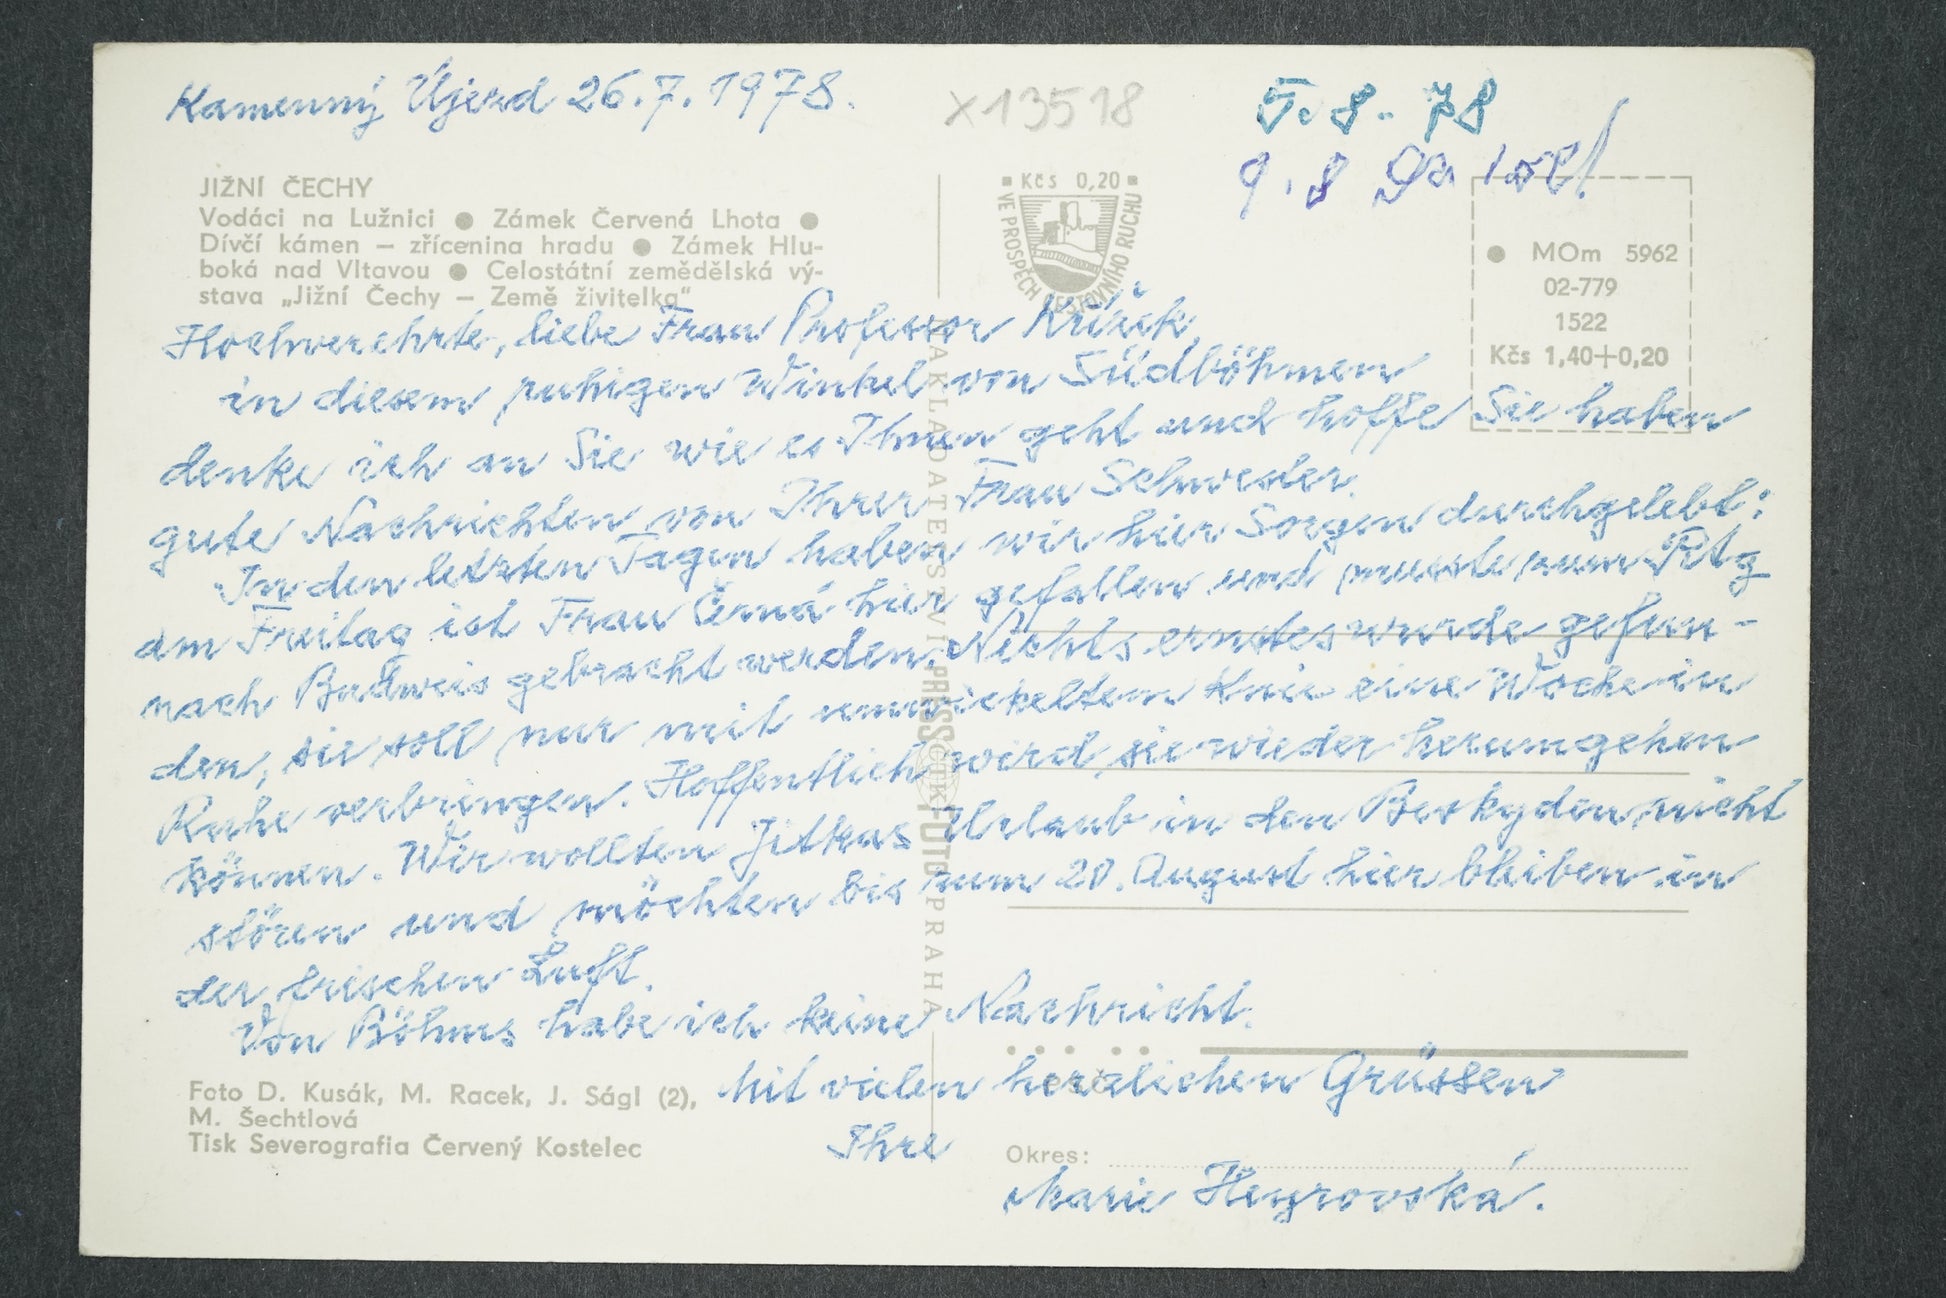 Kamenný Újezd 26.7.1978.
X13518
5. 8. 78
9. 8
JIŽNÍ ČECHY
Vodáci na Lužnici ● Zámek Červená Lhota ●
Dívčí kámen – zřícenina hradu ● Zámek Hlu-
boká nad Vltavou ● Celostátní zemědělská vý-
stava „Jižní Čechy – Země živitelka"
Kčs 0,20
VE PROSPĚCH CESTOVNÍHO RUCHU
● MOm 5962
02-779
1522
Kčs 1,40+0,20
Hochverehrte, liebe Frau Professor Křížek,
in diesem ruhigen Winkel von Südböhmen
denke ich an Sie wie es Ihnen geht und hoffe Sie haben
gute Nachrichten von Ihrer Frau Schwester.
In den letzten Tagen haben wir hier Sorgen durchgelebt:
am Freitag ist Frau Černá hier gefallen und musste zum Rtg
nach Budweis gebracht werden. Nichts ernstes wurde gefun-
den, sie soll nur mit umwickeltem Knie eine Woche in
Ruhe verbringen. Hoffentlich wird sie wieder herumgehen
können. Wir wollten Jitkas Urlaub in den Beskyden nicht
stören und möchten bis zum 20. August hier bleiben in
der frischen Luft.
Von Böhms habe ich keine Nachricht.
Mit vielen herzlichen Grüssen
Ihre
Marie Heyrovská.
NAKLADATELSTVÍ PRESSFOTO PRAHA
ČTK
PSČ
Foto D. Kusák, M. Racek, J. Ságl (2),
M. Šechtlová
Tisk Severografia Červený Kostelec
Okres: